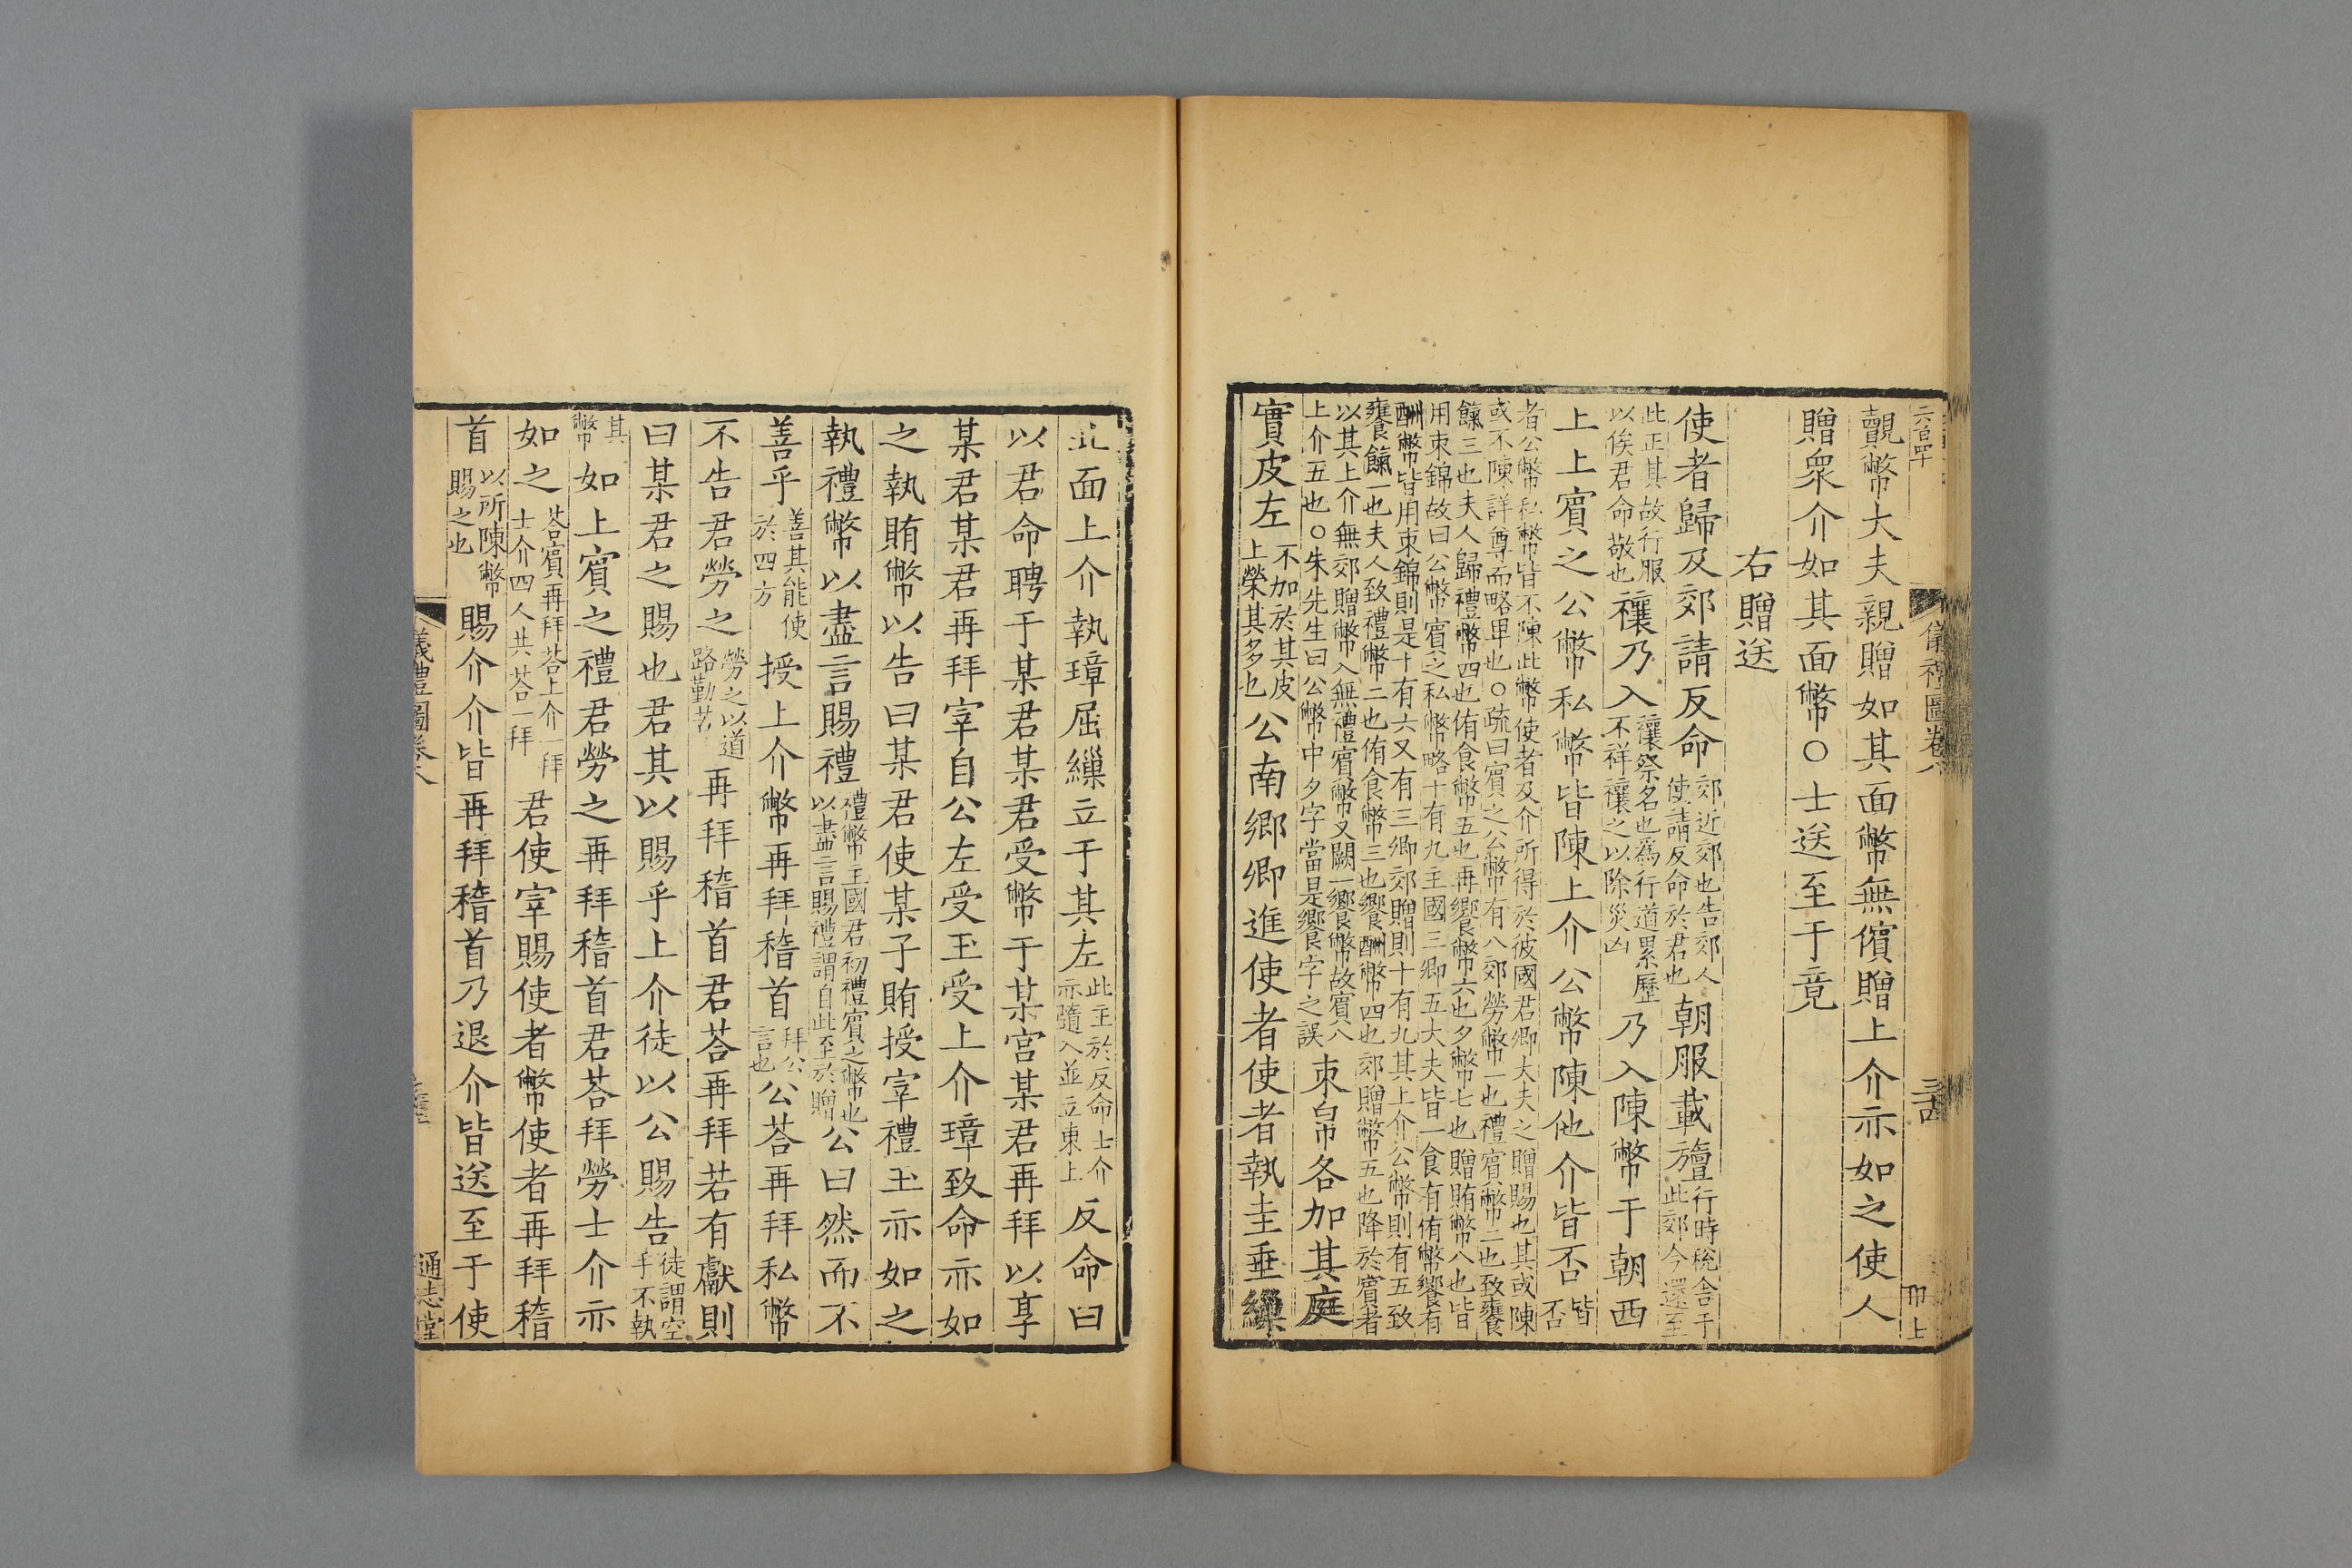 六百四十
儀禮圖卷八
三十四
覿幣大夫親贈如其面幣無儐贈上介亦如之使人
贈衆介如其面幣○士送至于竟
右贈送
使者歸及郊請反命郊近郊也告郊人使請反命於君也朝服載旜行時稅舍于此郊今還至
此正其故行服以俟君命敬也禳乃入禳祭名也為行道累歷不祥禳之以除災凶乃入陳幣于朝西
上上賓之公幣私幣皆陳上介公幣陳他介皆否皆否
者公幣私幣皆不陳此幣使者及介所得於彼國君卿大夫之贈賜也其或陳
或不陳詳尊而略卑也○疏曰賓之公幣有八郊勞幣一也禮賓幣二也致饔
餼三也夫人歸禮幣四也侑食幣五也再饗幣六也夕幣七也贈賄幣八也皆
用束錦故曰公幣賓之私幣略十有九主國三卿五大夫皆一食有侑幣饗有
酬幣皆用束錦則是十有六又有三卿郊贈則十有九其上介公幣則有五致
饔餼一也夫人致禮幣二也侑食幣三也饗酬幣四也郊贈幣五也降於賓者
以其上介無郊贈幣入無禮賓幣又闕一饗幣故賓八
上介五也○朱先生曰公幣中夕字當是饗字之誤束帛各加其庭
實皮左不加於其皮上榮其多也公南鄉卿進使者使者執圭垂繅
北面上介執璋屈繅立于其左此主於反命士介亦隨入並立東上反命曰
以君命聘于某君某君受幣于某宮某君再拜以享
某君某君再拜宰自公左受玉受上介璋致命亦如
之執賄幣以告曰某君使某子賄授宰禮玉亦如之
執禮幣以盡言賜禮禮幣主國君初禮賓之幣也以盡言賜禮謂自此至於贈公曰然而不
善乎善其能使於四方授上介幣再拜稽首拜公言也公荅再拜私幣
不告君勞之勞之以道路勤苦再拜稽首君荅再拜若有獻則
曰某君之賜也君其以賜乎上介徒以公賜告徒謂空手不執
其幣如上賓之禮君勞之再拜稽首君荅拜勞士介亦
如之荅賓再拜荅上介一拜士介四人共荅一拜君使宰賜使者幣使者再拜稽
首以所陳幣賜之也賜介介皆再拜稽首乃退介皆送至于使
儀禮圖卷八
通志堂